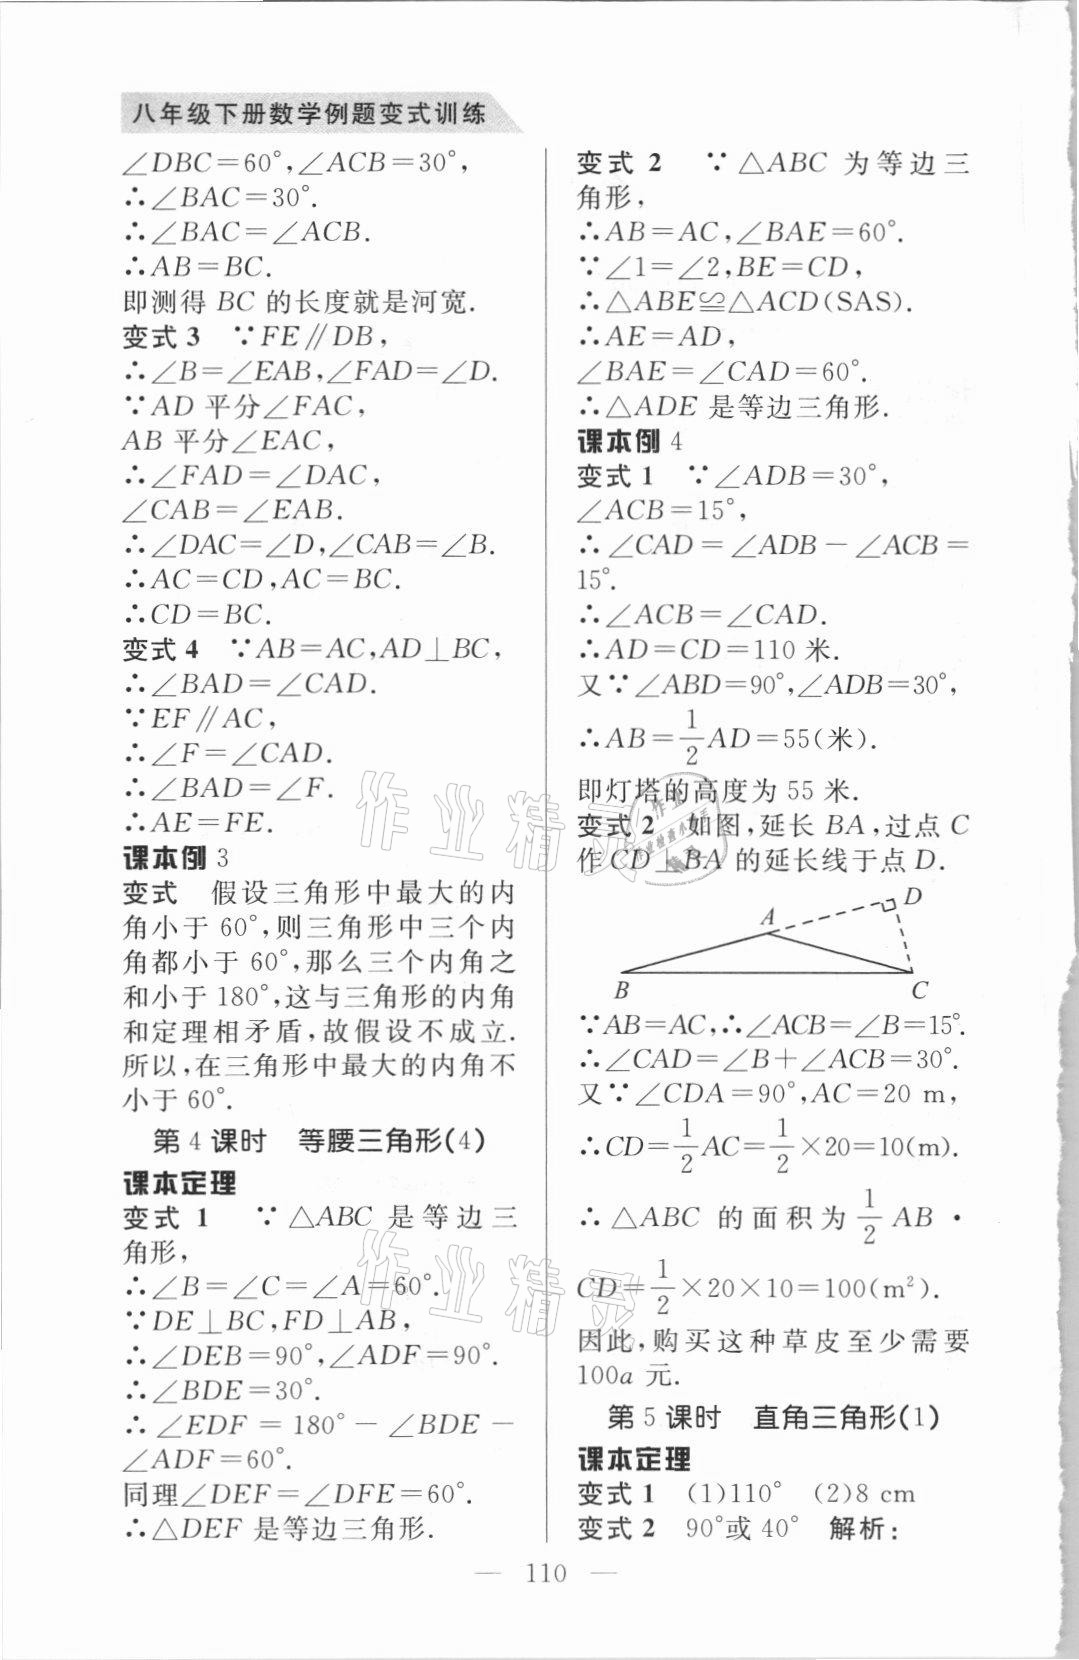 八年级下册数学例题变式训练
∠DBC=60°,∠ACB=30°,
∴∠BAC=30°.
∴∠BAC=∠ACB.
∴AB=BC.
即测得 BC 的长度就是河宽.
变式 3 ∵FE∥DB,
∴∠B=∠EAB,∠FAD=∠D.
∵AD 平分∠FAC,
AB 平分∠EAC,
∴∠FAD=∠DAC,
∠CAB=∠EAB.
∴∠DAC=∠D,∠CAB=∠B.
∴AC=CD,AC=BC.
∴CD=BC.
变式 4 ∵AB=AC,AD⊥BC,
∴∠BAD=∠CAD.
∵EF∥AC,
∴∠F=∠CAD.
∴∠BAD=∠F.
∴AE=FE.
课本例 3
变式 假设三角形中最大的内
角小于 60°,则三角形中三个内
角都小于 60°,那么三个内角之
和小于 180°,这与三角形的内角
和定理相矛盾,故假设不成立.
所以,在三角形中最大的内角不
小于 60°.
第 4 课时 等腰三角形(4)
课本定理
变式 1 ∵△ABC 是等边三
角形,
∴∠B=∠C=∠A=60°.
∵DE⊥BC,FD⊥AB,
∴∠DEB=90°,∠ADF=90°.
∴∠BDE=30°.
∴∠EDF=180°-∠BDE-
∠ADF=60°.
同理∠DEF=∠DFE=60°.
∴△DEF 是等边三角形.
变式 2 ∵△ABC 为等边三
角形,
∴AB=AC,∠BAE=60°.
∵∠1=∠2,BE=CD,
∴△ABE≌△ACD(SAS).
∴AE=AD,
∠BAE=∠CAD=60°.
∴△ADE 是等边三角形.
课本例 4
变式 1 ∵∠ADB=30°,
∠ACB=15°,
∴∠CAD=∠ADB-∠ACB=
15°.
∴∠ACB=∠CAD.
∴AD=CD=110 米.
又∵∠ABD=90°,∠ADB=30°,
∴AB=1/2AD=55(米).
即灯塔的高度为 55 米.
变式 2 如图,延长 BA,过点 C
作 CD⊥BA 的延长线于点 D.
D
A
B C
∵AB=AC,∴∠ACB=∠B=15°.
∴∠CAD=∠B+∠ACB=30°.
又∵∠CDA=90°,AC=20 m,
∴CD=1/2AC=1/2×20=10(m).
∴△ABC 的面积为 1/2 AB·
CD=1/2×20×10=100(m²).
因此,购买这种草皮至少需要
100a 元.
第 5 课时 直角三角形(1)
课本定理
变式 1 (1)110° (2)8 cm
变式 2 90°或 40° 解析:
— 110 —
作业精灵
作业精灵